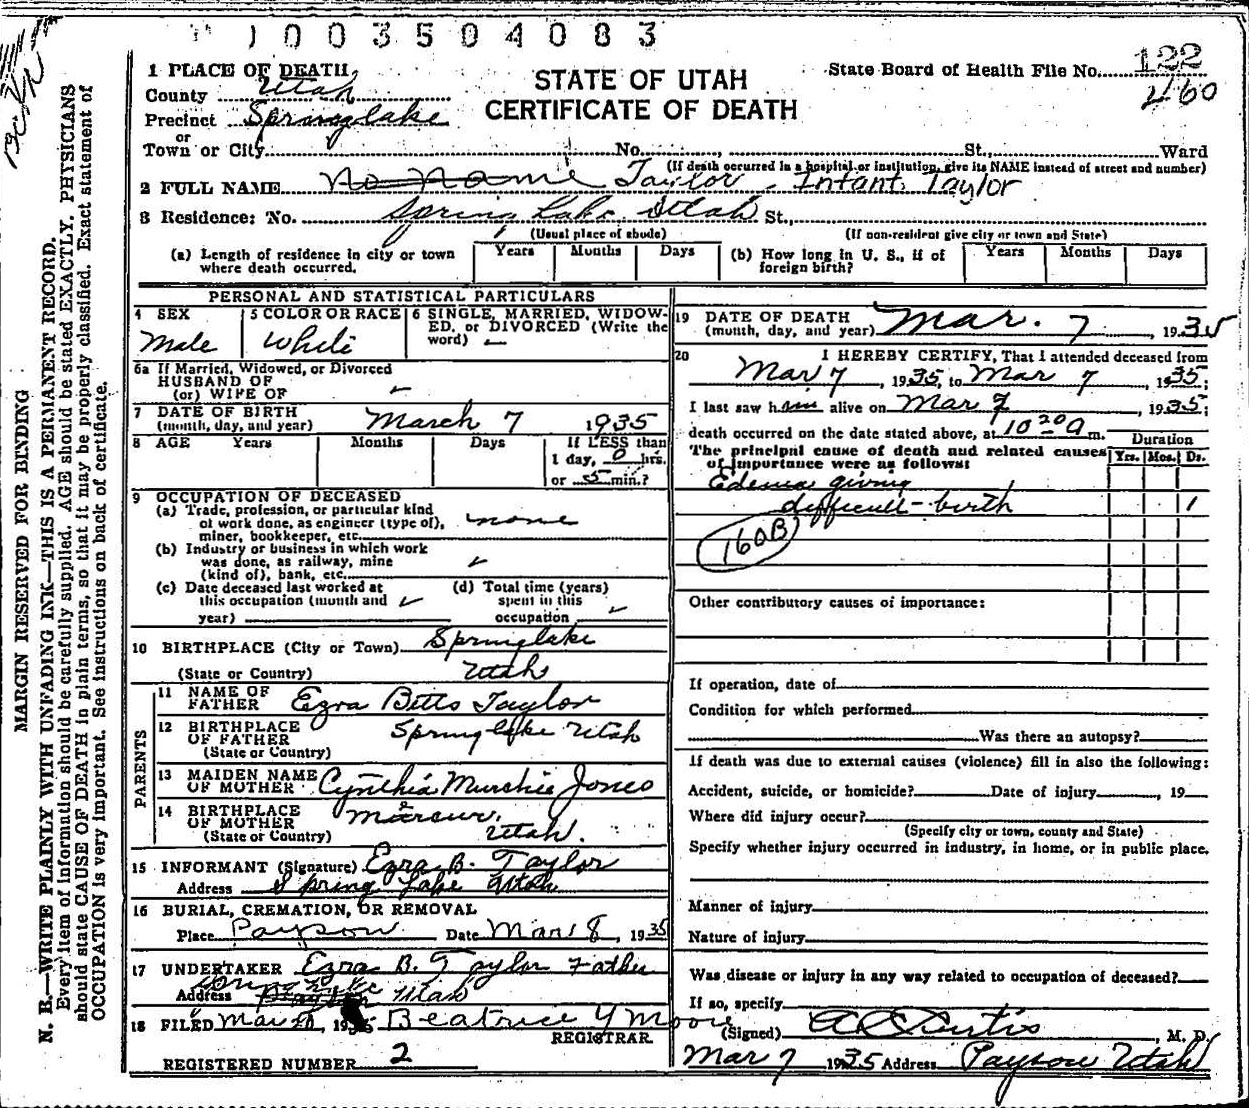 1003504083
1 PLACE OF DEATH
STATE OF UTAH
CERTIFICATE OF DEATH
State Board of Health File No. 122
460
County Utah
Precinct Springlake
or
Town or City No. St., Ward
(If death occurred in a hospital or institution, give its NAME instead of street and number)
2 FULL NAME No Name Taylor. Infant Taylor
3 Residence: No. Spring Lake Utah St.,
(Usual place of abode) (If non-resident give city or town and State)
(a) Length of residence in city or town where death occurred. Years Months Days (b) How long in U. S., if of foreign birth? Years Months Days
PERSONAL AND STATISTICAL PARTICULARS
4 SEX Male
5 COLOR OR RACE White
6 SINGLE, MARRIED, WIDOW-
ED, or DIVORCED (Write the
word)
6a If Married, Widowed, or Divorced
HUSBAND OF
(or) WIFE OF
7 DATE OF BIRTH
(month, day, and year) March 7 1935
8 AGE Years Months Days If LESS than
1 day, 0 hrs.
or 5 min.?
9 OCCUPATION OF DECEASED
(a) Trade, profession, or particular kind
of work done, as engineer (type of), none
miner, bookkeeper, etc.
(b) Industry or business in which work
was done, as railway, mine
(kind of), bank, etc.
(c) Date deceased last worked at
this occupation (month and
year)
(d) Total time (years)
spent in this
occupation
10 BIRTHPLACE (City or Town) Springlake
(State or Country) Utah
PARENTS
11 NAME OF
FATHER Ezra Betts Taylor
12 BIRTHPLACE
OF FATHER Springlake Utah
(State or Country)
13 MAIDEN NAME
OF MOTHER Cynthia Murchie Jones
14 BIRTHPLACE
OF MOTHER Mercur,
(State or Country) Utah.
15 INFORMANT (Signature) Ezra B. Taylor
Address Spring Lake Utah
16 BURIAL, CREMATION, OR REMOVAL
Place Payson Date Mar 8, 1935
17 UNDERTAKER Ezra B. Taylor Father
Address Spring Lake Utah
18 FILED Mar 1935 Beatrice Y Moore
REGISTRAR.
REGISTERED NUMBER 2
19 DATE OF DEATH
(month, day, and year) Mar. 7, 1935
20 I HEREBY CERTIFY, That I attended deceased from
Mar 7, 1935, to Mar 7, 1935;
I last saw him alive on Mar 7, 1935;
death occurred on the date stated above, at 10 20 a m.
The principal cause of death and related causes
of importance were as follows:
Duration
Yrs. Mos. Ds.
Edema giving
difficult birth 1
160B
Other contributory causes of importance:
If operation, date of
Condition for which performed
Was there an autopsy?
If death was due to external causes (violence) fill in also the following:
Accident, suicide, or homicide? Date of injury, 19
Where did injury occur?
(Specify city or town, county and State)
Specify whether injury occurred in industry, in home, or in public place.
Manner of injury
Nature of injury
Was disease or injury in any way related to occupation of deceased?
If so, specify
(Signed) A C Curtis, M. D.
Mar 7 1935 Address Payson Utah
MARGIN RESERVED FOR BINDING
N. B.—WRITE PLAINLY WITH UNFADING INK—THIS IS A PERMANENT RECORD.
Every item of information should be carefully supplied. AGE should be stated EXACTLY. PHYSICIANS
should state CAUSE OF DEATH in plain terms, so that it may be properly classified. Exact statement of
OCCUPATION is very important. See instructions on back of certificate.